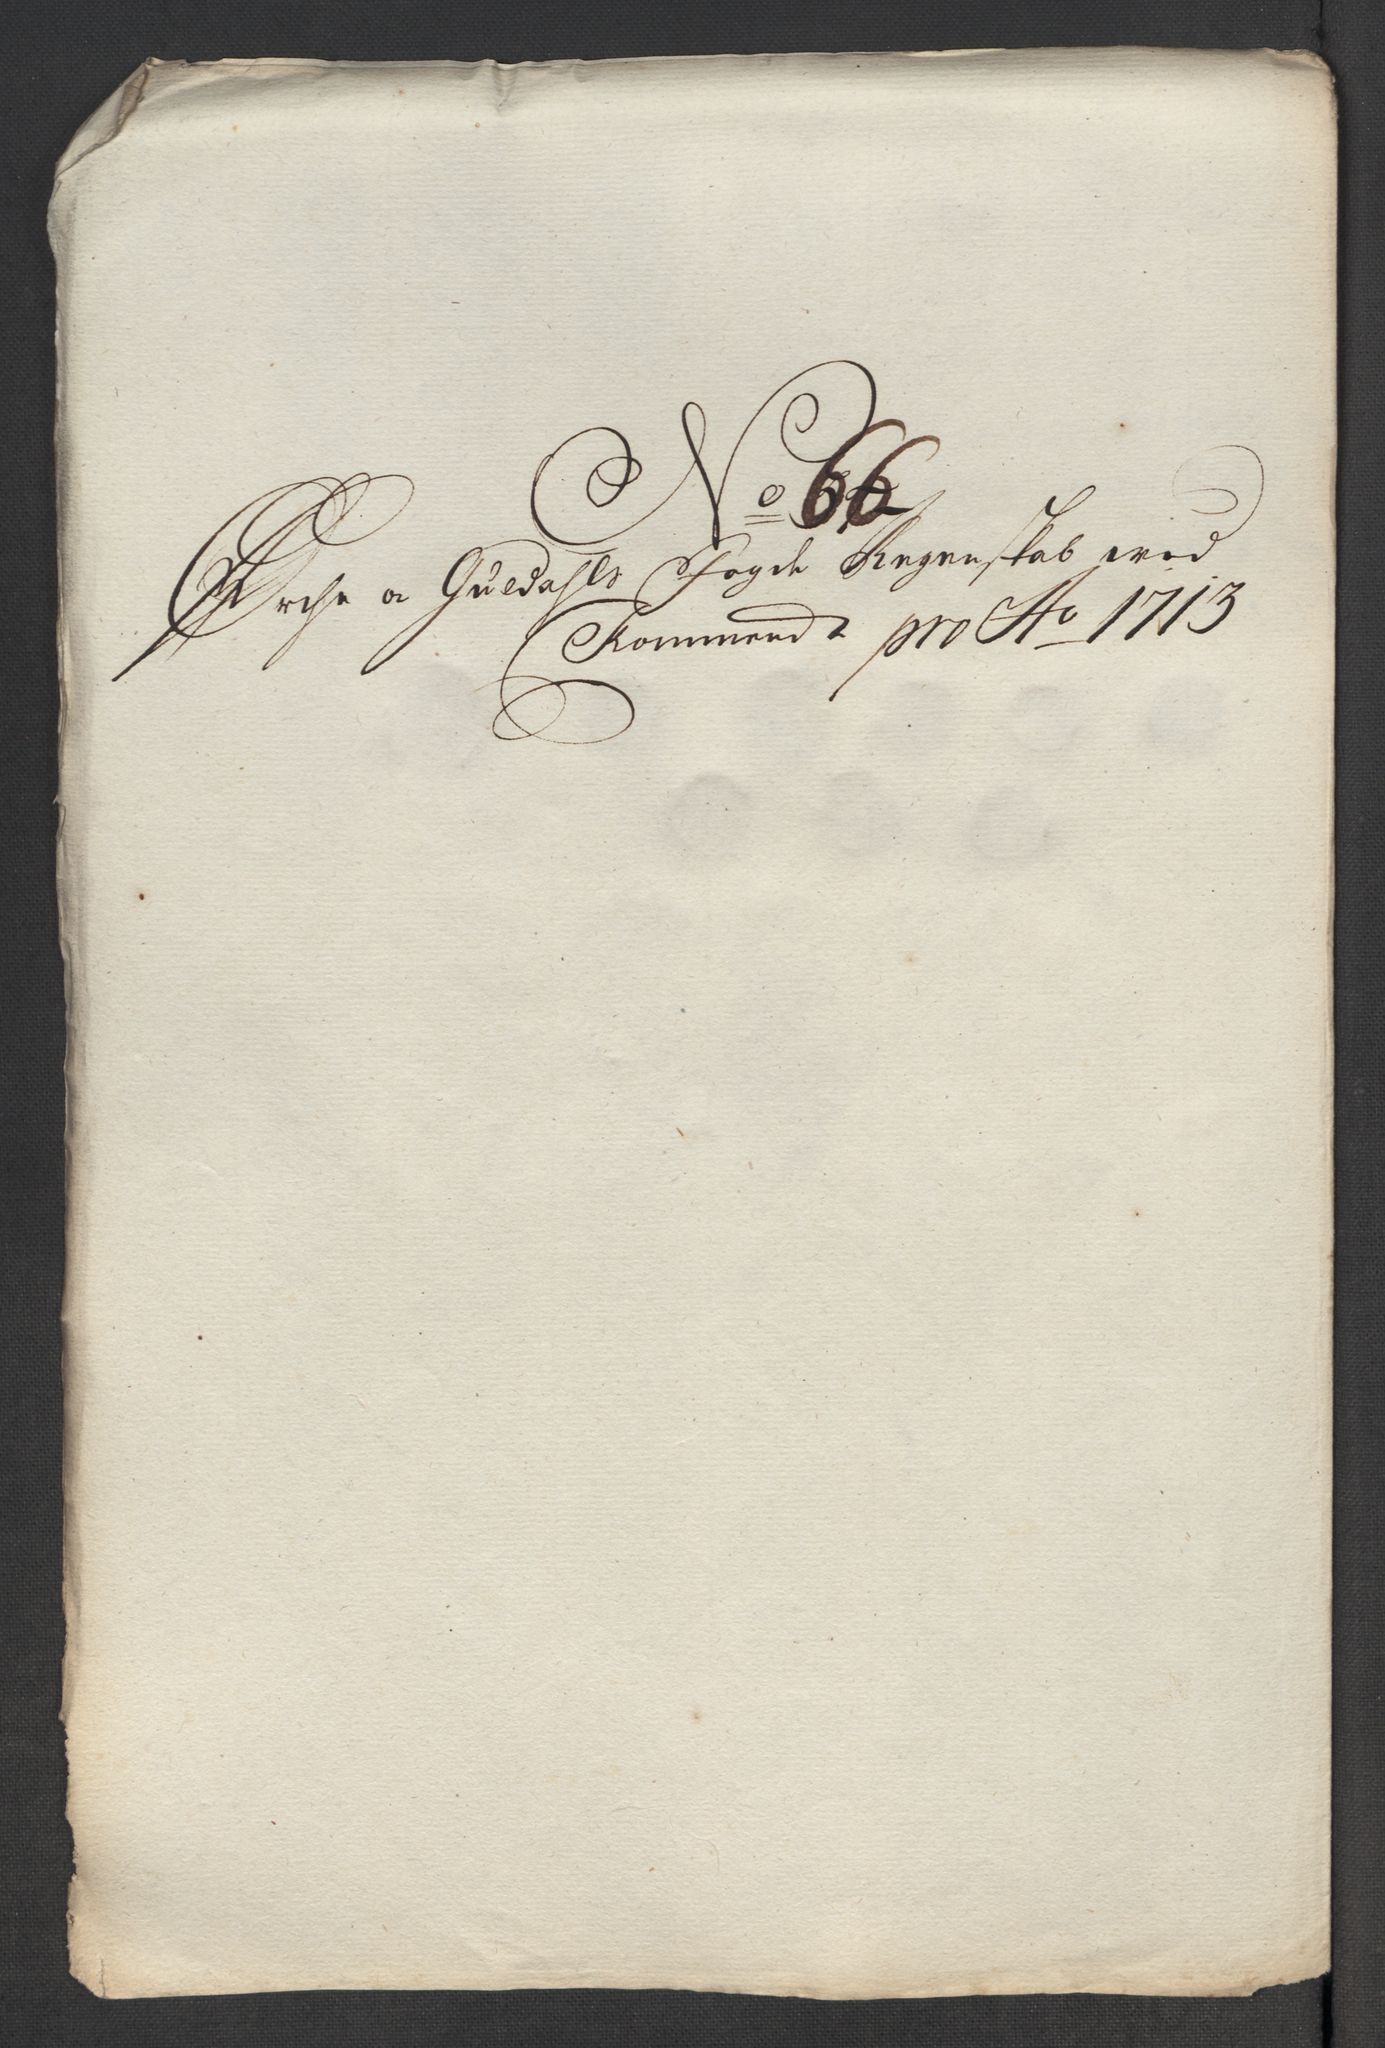 No 66
Orche og Guldahls Fogde Regenskab ved
Kommend pro Ao 1713